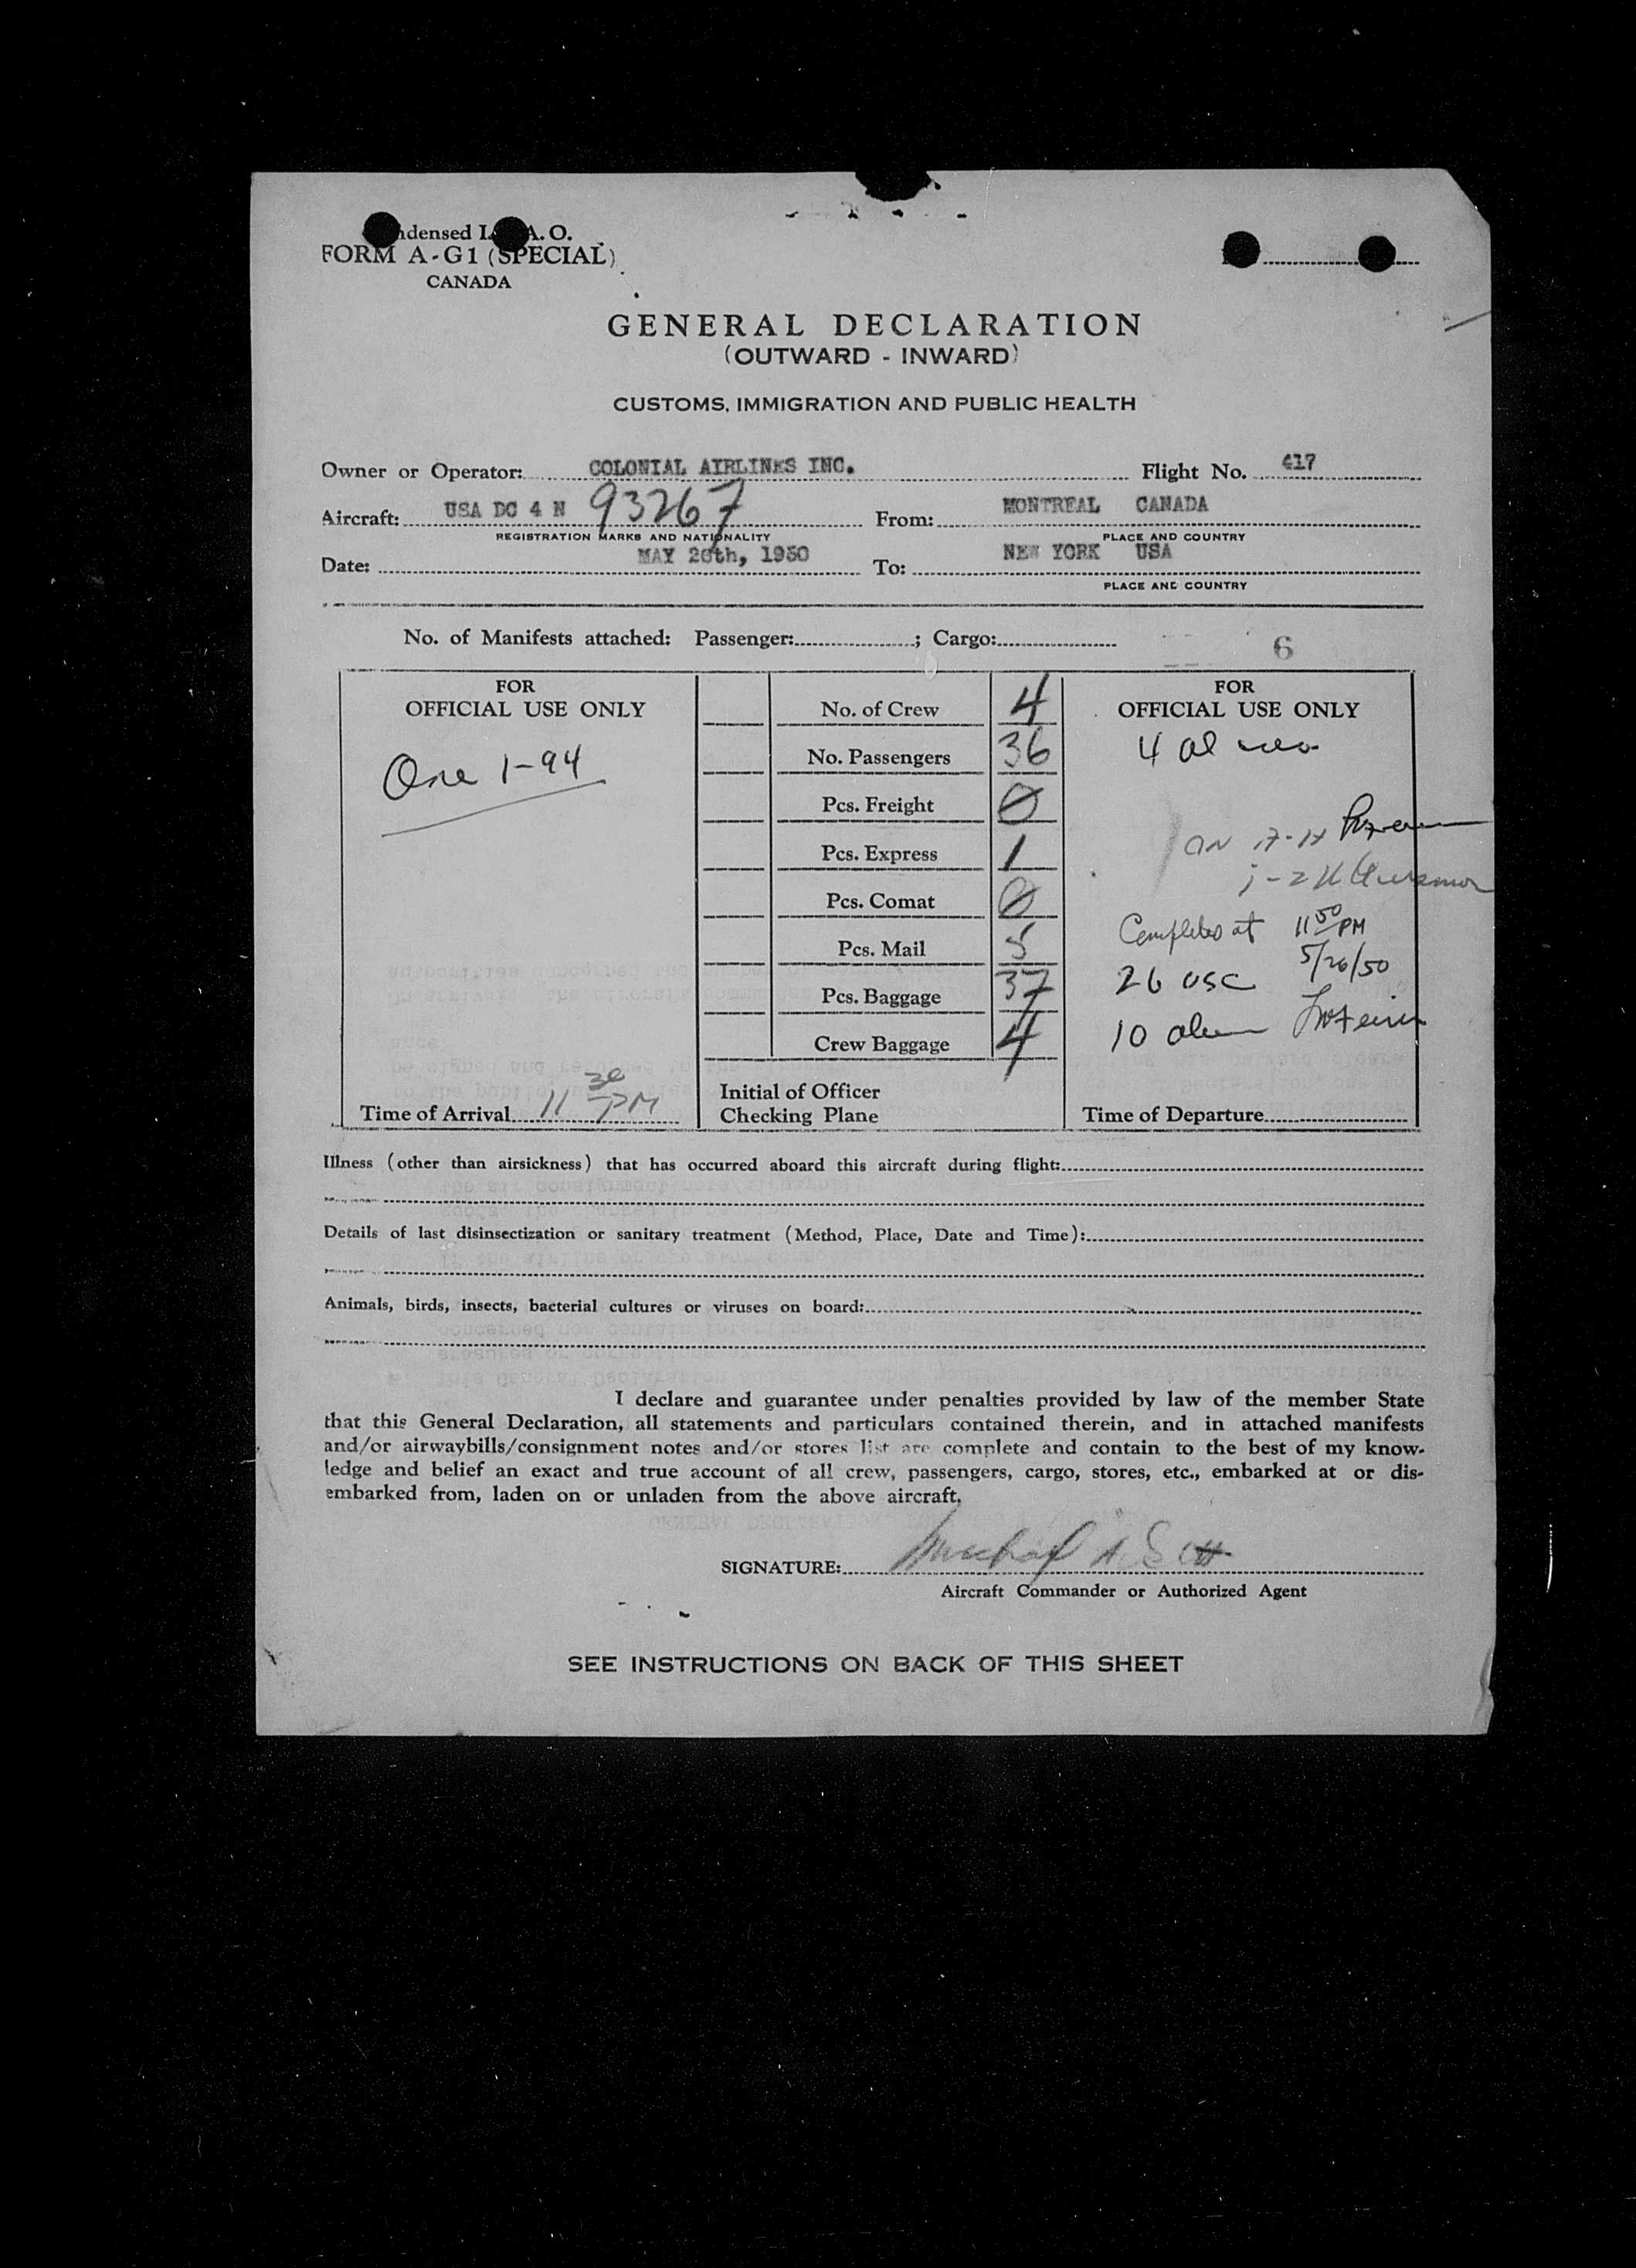 ndensed I. A. O.
FORM A-G1 (SPECIAL)
CANADA
GENERAL DECLARATION
(OUTWARD - INWARD)
CUSTOMS, IMMIGRATION AND PUBLIC HEALTH
Owner or Operator: COLONIAL AIRLINES INC. Flight No. 417
Aircraft: USA DC 4 N 93267 From: MONTREAL CANADA
REGISTRATION MARKS AND NATIONALITY PLACE AND COUNTRY
Date: MAY 26th, 1950 To: NEW YORK USA
PLACE AND COUNTRY
No. of Manifests attached: Passenger: ; Cargo:
6
FOR
OFFICIAL USE ONLY
One 1-94
Time of Arrival 11 30 PM
No. of Crew 4
No. Passengers 36
Pcs. Freight 0
Pcs. Express 1
Pcs. Comat 0
Pcs. Mail 5
Pcs. Baggage 37
Crew Baggage 4
Initial of Officer
Checking Plane
FOR
OFFICIAL USE ONLY
4
Completed at 11 50 PM
5/26/50
26 USC
10
Time of Departure
Illness (other than airsickness) that has occurred aboard this aircraft during flight:
Details of last disinsectization or sanitary treatment (Method, Place, Date and Time):
Animals, birds, insects, bacterial cultures or viruses on board:
I declare and guarantee under penalties provided by law of the member State
that this General Declaration, all statements and particulars contained therein, and in attached manifests
and/or airwaybills/consignment notes and/or stores list are complete and contain to the best of my know-
ledge and belief an exact and true account of all crew, passengers, cargo, stores, etc., embarked at or dis-
embarked from, laden on or unladen from the above aircraft.
SIGNATURE:
Aircraft Commander or Authorized Agent
SEE INSTRUCTIONS ON BACK OF THIS SHEET